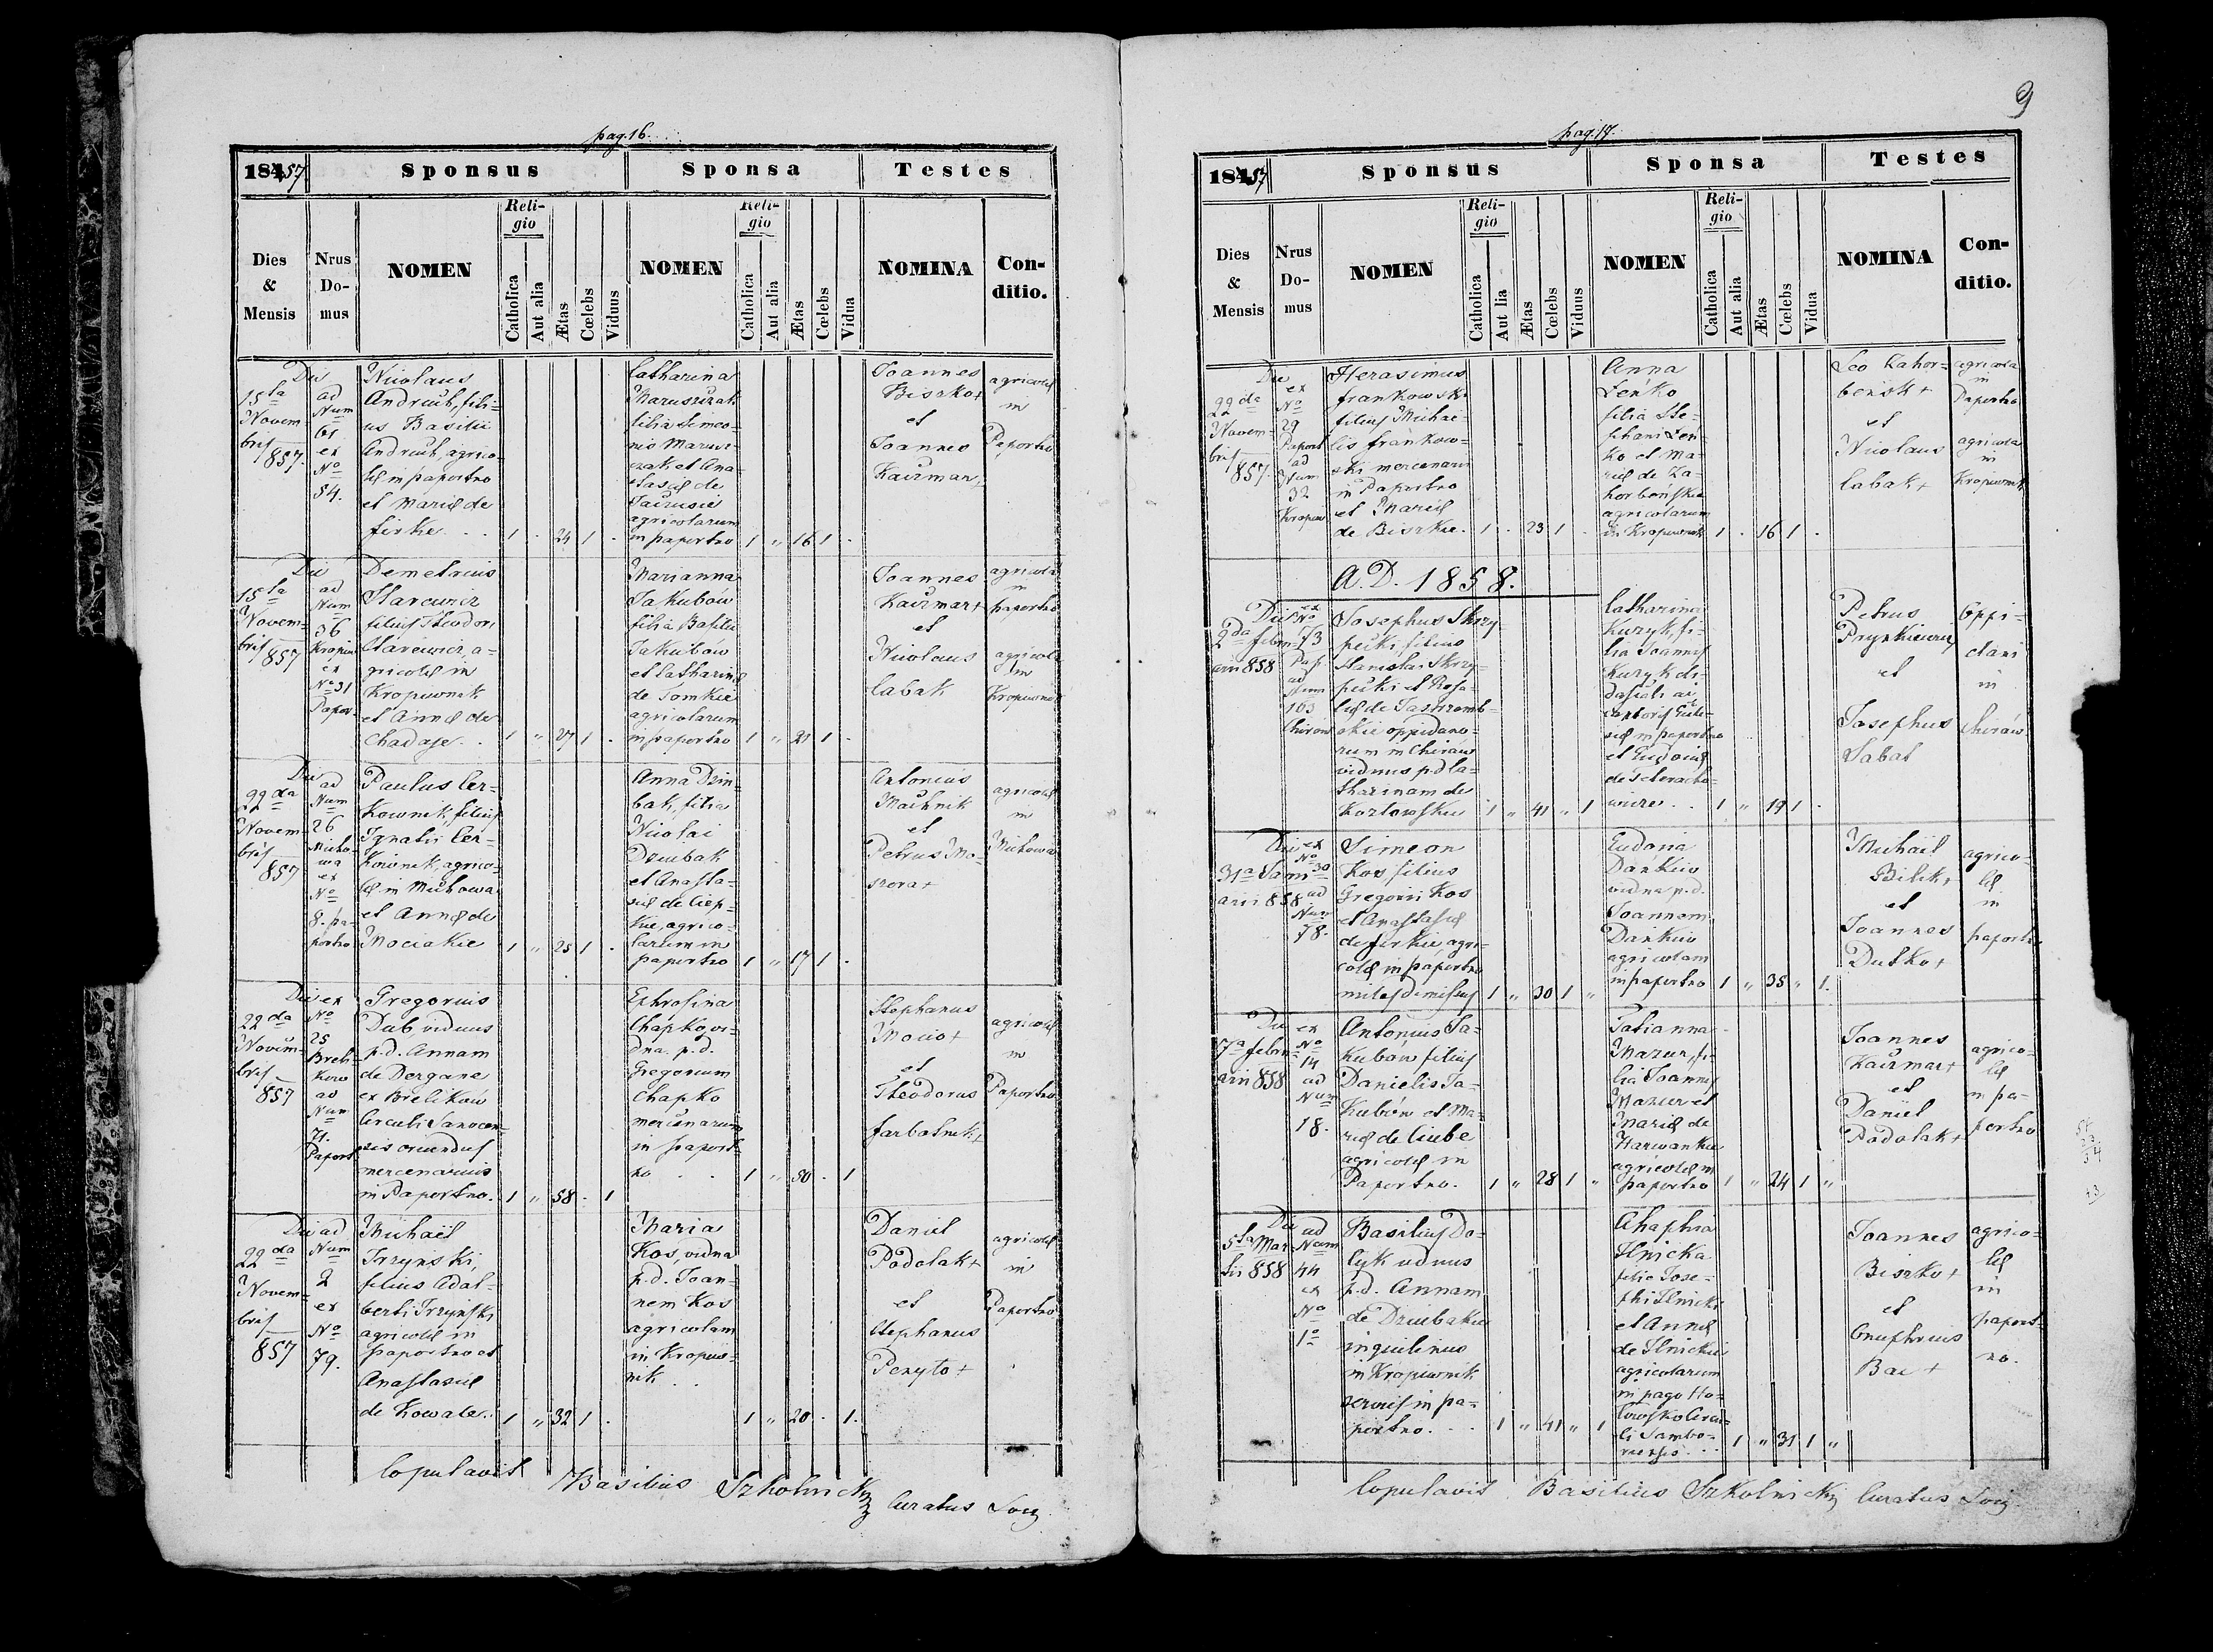 pag. 16.
1857 Sponsus Sponsa Testes
Dies & Mensis
Nrus Domus
NOMEN
Religio
Catholica
Aut alia
Ætas
Cœlebs
Viduus
NOMEN
Religio
Catholica
Aut alia
Ætas
Cœlebs
Vidua
NOMINA
Conditio.
Die
15ta
Novem=
bris
857.
ad
Num
61
ex
No
54.
Nicolaus
Andreub, fili=
us Basilii
Andreub, agrico=
læ in paportno
et Mariæ de
firkie
1 . 24 1 .
Catharina
filia Simeo=
nis
et Ana=
stasiæ de
agricolarum
in paportno 1 " 16 1 .
Joannes
Biszko +
et
Joannes
Kaczmar +
agricolæ
in
Paportno
Die
15ta
Novem=
bris
857
ad
Num
36
Kropiw
ex
No 31
Papor.
Demetrius
filius Theodori
a=
gricolæ in
Kropiwnik
et Annæ de
1 " 27 1 .
Marianna
Jakubów
filia Basilii
Jakubow
et Catharinæ
de Tomkie
agricolarum
in paportno 1 " 21 1 .
Joannes
Kaczmar +
et
Nicolaus
Cabak
agricola
in
paportno
agricola
in
Kropiwnik
Die
22da
Novem=
bris
857
ad
Num
26
Micho=
wa
ex
No
8. pa=
portno
Paulus Cer=
kownik, filius
Ignatii Cer=
kownik, agrico=
læ in Michowa
et Annæ de
Mociakie 1 " 25 1 .
Anna Dziu=
bak, filia
Nicolai
Dziubak
et Anasta=
siæ de Ciep=
kie, agrico=
larum in
paportno 1 " 17 1 .
Antonius
Machnik
et
Petrus Mo=
szora +
agricolæ
in
Michowa
Die
22da
Novem=
bris
857
ex
No
25
Breli=
kow
ad
Num
71.
Paport
Gregorius
Dub viduus
p. d. Annam
de Dergane
ex Brelikow
Circuli Sanocen=
sis oriundus
mercenarius
in Paportno. 1 " 58 . 1
Eufrosina
Chapko, vi=
dua p. d.
Gregorium
Chapko
mercenarium
in paport=
no 1 " 50 . 1
Stephanus
Mocio +
et
Theodorus
farbotnik +
agricolæ
in
Paportno
Die
22da
Novem=
bris
857
ad
Num
2
ex
No
79.
Michaël
Trzynski,
filius Adal=
berti Trzynski
agricolæ in
paportno et
Anastasiæ
de Kowale. 1 " 32 1 .
Maria
Kos, vidua
p. d. Joan=
nem Kos
agricolam
in Kropiw=
nik
1 " 20 . 1.
Daniel
Podolak +
et
Stephanus
Penyto +
agricolæ
in
Paportno
Copulavit Basilius Szkolnicky Curatus Loci
9
pag. 17.
1857 Sponsus Sponsa Testes
Dies & Mensis
Nrus Domus
NOMEN
Religio
Catholica
Aut lia
Ætas
Cœlebs
Viduus
NOMEN
Religio
Catholica
Aut alia
Ætas
Cœlebs
Vidua
NOMINA
Conditio.
Die
22da
Novem=
bris
857.
ex
No
29
Paport
ad
Num
32
Kropiw
Herasimus
frankowski
filius Michae=
lis frankow=
ski mercenarii
in Paportno
et Mariæ
de Biszkie. 1 . 23 1 .
Anna
Leńko
filia Ste=
phani Leń
ko et Ma=
riæ de Za=
horbeńskie
agricolarum
in Kropiwnik 1 . 16 1 .
Leo Zahor=
beńsk +
et
Nicolaus
Cabak +
agricola
in
Paportno
agricola
in
Kropiwnik
A. D. 1858.
Die
2da febru
arii 858
ex
No
73
Pap
ad
Num
163
Chirow
Josephus Skrzy
pecki, filius
Stanislai Skrzy=
pecki et Rosa=
liæ de Jastrzemb=
skie oppidano=
rum in Chirow
viduus p. d Ca=
tharinam de
Kozlowskie 1 " 41 " 1
Catharina
Kuzyk, fi=
lia Joannis
Kuzyk
in paportno
et Eudociæ
1 " 19 1 .
Petrus
et
Josephus
Sabat
Oppi=
dani
in
Chirow
Die
31a Janu
arii 858
ex
No
30
ad
Num
78.
Simeon
Kos filius
Gregorii Kos
et Anastasiæ
de firkie agri=
colæ in paportno
miles dimissus 1 " 30 1 "
Eudonia
Dańkiw
vidua p. d.
Joannem
Dańkiw
agricolam
in paportno 1 " 35 " 1.
Michaël
Bilik +
et
Joannes
Dutko +
agrico=
læ
in
paportno
Die
7a febru=
arii 858
ex
No
14
ad
Num
18.
Antonius Ja=
kubów filius
Danielis Ja=
kubów et Ma=
riæ de Ciube
agricolæ in
Paportno. 1 " 28 1 "
Tatianna
Mazur, fi=
lia Joannis
Mazur et
Mariæ de
agricolæ in
paportno 1 " 24 1 "
Joannes
Kaczmar +
et
Daniel
Podolak +
agrico=
læ
in pa=
portno
Die
5ta Mar=
tii 858
ad
Num
44
ex
No
1o
Basilius Do=
lyk viduus
p. d. Annam
de Dziubakie
inquilinus
in Kropiwnik
servus in pa=
portno. 1 " 41 " 1
Ahaphia
Ilnicka
filia Jose=
phi Ilnicki
et Annæ
de Ilnickie
agricolarum
in pago
Circu=
li Sambo=
riensis 1 " 31 1 "
Joannes
Biszko +
et
Onuphrius
Bac +
agrico=
læ
in
paport=
no.
Copulavit Basilius Szkolnicky Curatus Loci.